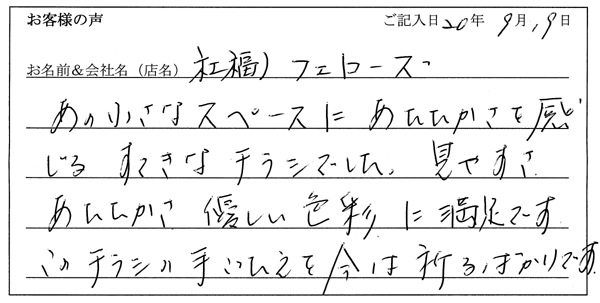 お客様の声 ご記入日 20年 9月 19日
お名前&会社名(店名) 社福) フェローズ
あの小さなスペースに あたたかさを感じ
じる すてきなチラシでした。 見やすさ
あたたかさ 優しい色彩 に満足です
このチラシの手ごたえを今は祈るばかりです。